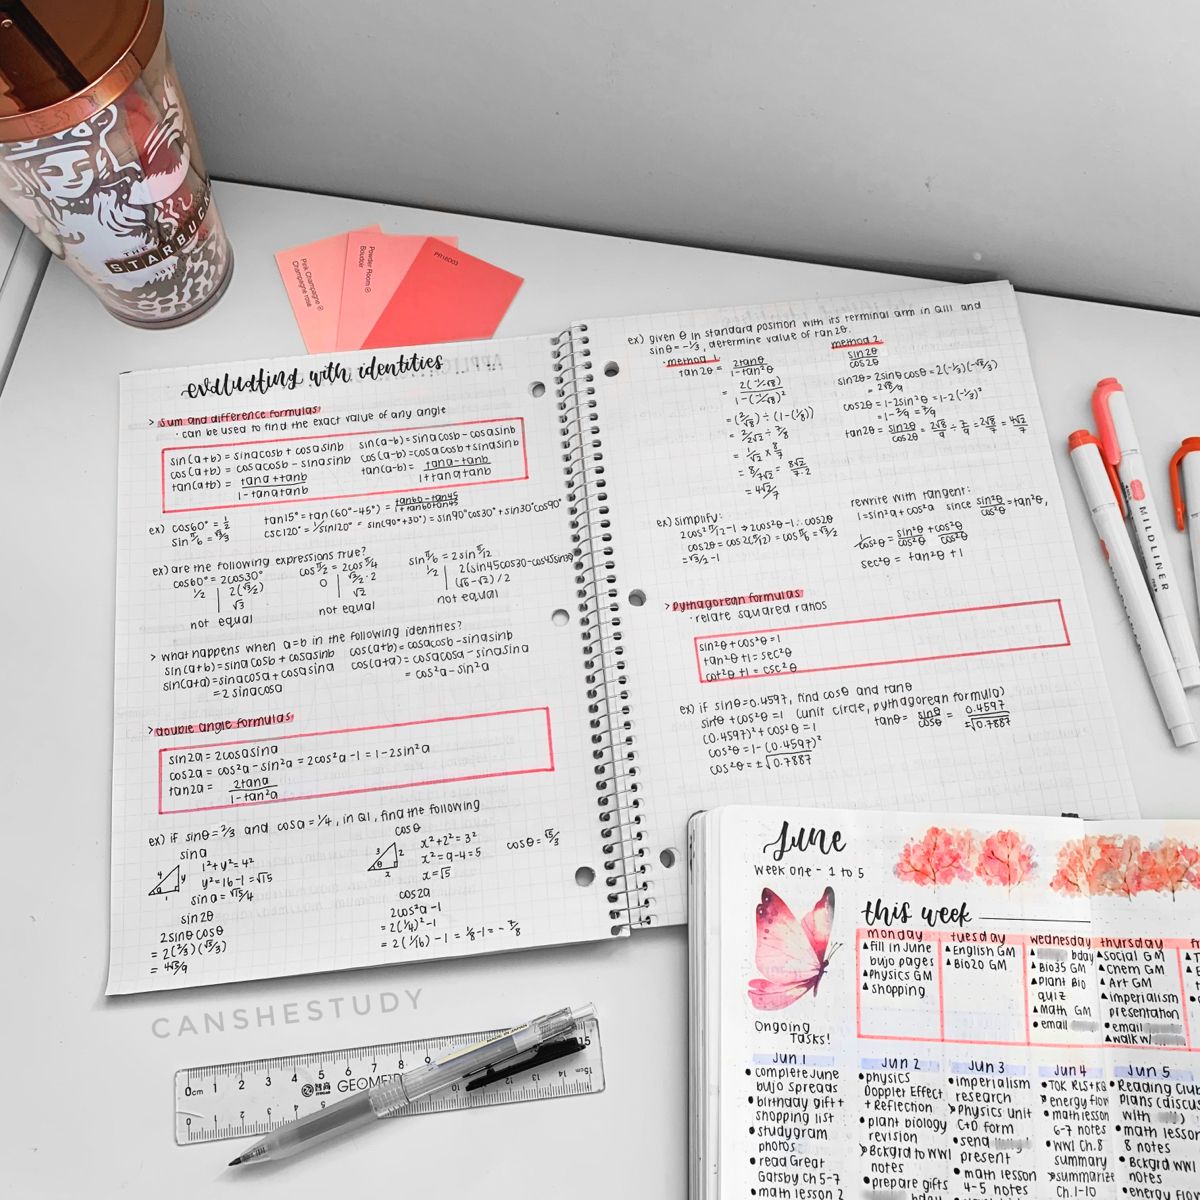 THE
STARBUCKS
Pink Champagne
Champagne rosé
Powder Room
Boudoir
evaluating with identities
> sum and difference formulas
· can be used to find the exact value of any angle
sin(a+b) = sinacosb + cosasinb
sin(a-b) = sinacosb - cosasinb
cos(a+b) = cosacosb - sinasinb
cos(a-b) = cosacosb + sinasinb
tan(a+b) = tana + tanb / 1 - tanatanb
tan(a-b) = tana - tanb / 1 + tanatanb
ex) cos60° = 1/2
sin π/6 = √3/3
tan15° = tan(60°-45°) = tan60-tan45 / 1+tan60tan45
csc120° = 1/sin120° = sin(90°+30°) = sin90°cos30° + sin30°cos90°
ex) are the following expressions true?
cos60° = 2cos30°
1/2 | 2(√3/2)
√3
not equal
cos π/2 = 2cos π/4
0 | √2/2 · 2
√2
not equal
sin π/6 = 2sin π/12
1/2 | 2(sin45cos30-cos45sin30)
(√6-√2)/2
not equal
> what happens when a=b in the following identities?
sin(a+b) = sinacosb + cosasinb
sin(a+a) = sinacosa + cosasina
= 2sinacosa
cos(a+b) = cosacosb - sinasinb
cos(a+a) = cosacosa - sinasina
= cos²a - sin²a
> double angle formulas
sin2a = 2cosasina
cos2a = cos²a - sin²a = 2cos²a - 1 = 1 - 2sin²a
tan2a = 2tana / 1 - tan²a
ex) if sinθ = 2/3 and cosa = 1/4, in Q1, find the following
sina
4 y
a
1
1² + y² = 4²
y² = 16 - 1 = √15
sina = √15/4
cosθ
3 2
θ
x
x² + 2² = 3²
x² = 9 - 4 = 5
x = √5
cosθ = √5/3
sin2θ
2sinθcosθ
= 2(2/3)(√5/3)
= 4√5/9
cos2a
2cos²a - 1
= 2(1/4)² - 1
= 2(1/16) - 1 = 1/8 - 1 = -7/8
ex) given θ in standard position with its terminal arm in QIII and
sinθ = -1/3, determine value of tan2θ.
· method 1
tan2θ = 2tanθ / 1 - tan²θ
= 2(-1/-√8) / 1 - (-1/-√8)²
= (2/√8) ÷ (1 - (1/8))
= 2/2√2 ÷ 7/8
= 1/√2 × 8/7
= 8/7√2 = 8√2 / 7·2
= 4√2/7
method 2
sin2θ / cos2θ
sin2θ = 2sinθcosθ = 2(-1/3)(-√8/3)
= 2√8/9
cos2θ = 1 - 2sin²θ = 1 - 2(-1/3)²
= 1 - 2/9 = 7/9
tan2θ = sin2θ / cos2θ = 2√8/9 ÷ 7/9 = 2√8/7 = 4√2/7
ex) simplify:
2cos² π/12 - 1 → 2cos²θ - 1 ∴ cos2θ
cos2θ = cos2(π/12) = cos π/6 = √3/2
= √3/2 - 1
rewrite with tangent:
1 = sin²a + cos²a since sin²θ/cos²θ = tan²θ,
1/cos²θ = sin²θ/cos²θ + cos²θ/cos²θ
sec²θ = tan²θ + 1
> pythagorean formulas
· relate squared ratios
sin²θ + cos²θ = 1
tan²θ + 1 = sec²θ
cot²θ + 1 = csc²θ
ex) if sinθ = 0.4597, find cosθ and tanθ
sin²θ + cos²θ = 1 (unit circle, pythagorean formula)
(0.4597)² + cos²θ = 1
cos²θ = 1 - (0.4597)²
cos²θ = ±√0.7887
tanθ = sinθ/cosθ = 0.4597 / ±√0.7887
MILDLINER
June
week one - 1 to 5
this week
monday
▲ fill in June
bujo pages
▲ physics GM
▲ shopping
tuesday
▲ English GM
▲ Bio20 GM
wednesday
▲ bday
▲ Bio35 GM
▲ plant Bio
quiz
▲ Math GM
• email
thursday
▲ social GM
▲ Chem GM
▲ Art GM
▲ imperialism
presentation
• email
▲ walk w/
Ongoing
Tasks!
Jun 1
• complete June
bujo spreads
• birthday gift +
shopping list
• studygram
photos
• read Great
Gatsby ch 5-7
• math lesson 2
Jun 2
• physics
Doppler Effect
+ Reflection
• plant biology
revision
> Bckgrd to WWI
notes
• prepare gifts
bday
Jun 3
• imperialism
research
> physics unit
C+D form
• send
present
• math lesson
4-5 notes
Jun 4
• TOK RLS + KQ
> energy flow
• math lesson
6-7 notes
• WWI Ch.8
summary
> summarize
Ch.1-10
Jun 5
• Reading Club
plans (discus
with )
• math lesson
8 notes
• Bckgrd WWI
notes
• energy flow
CANSHESTUDY
0cm 1 2 3 4 5 6 7 8 9
GEOMET
15
15cm